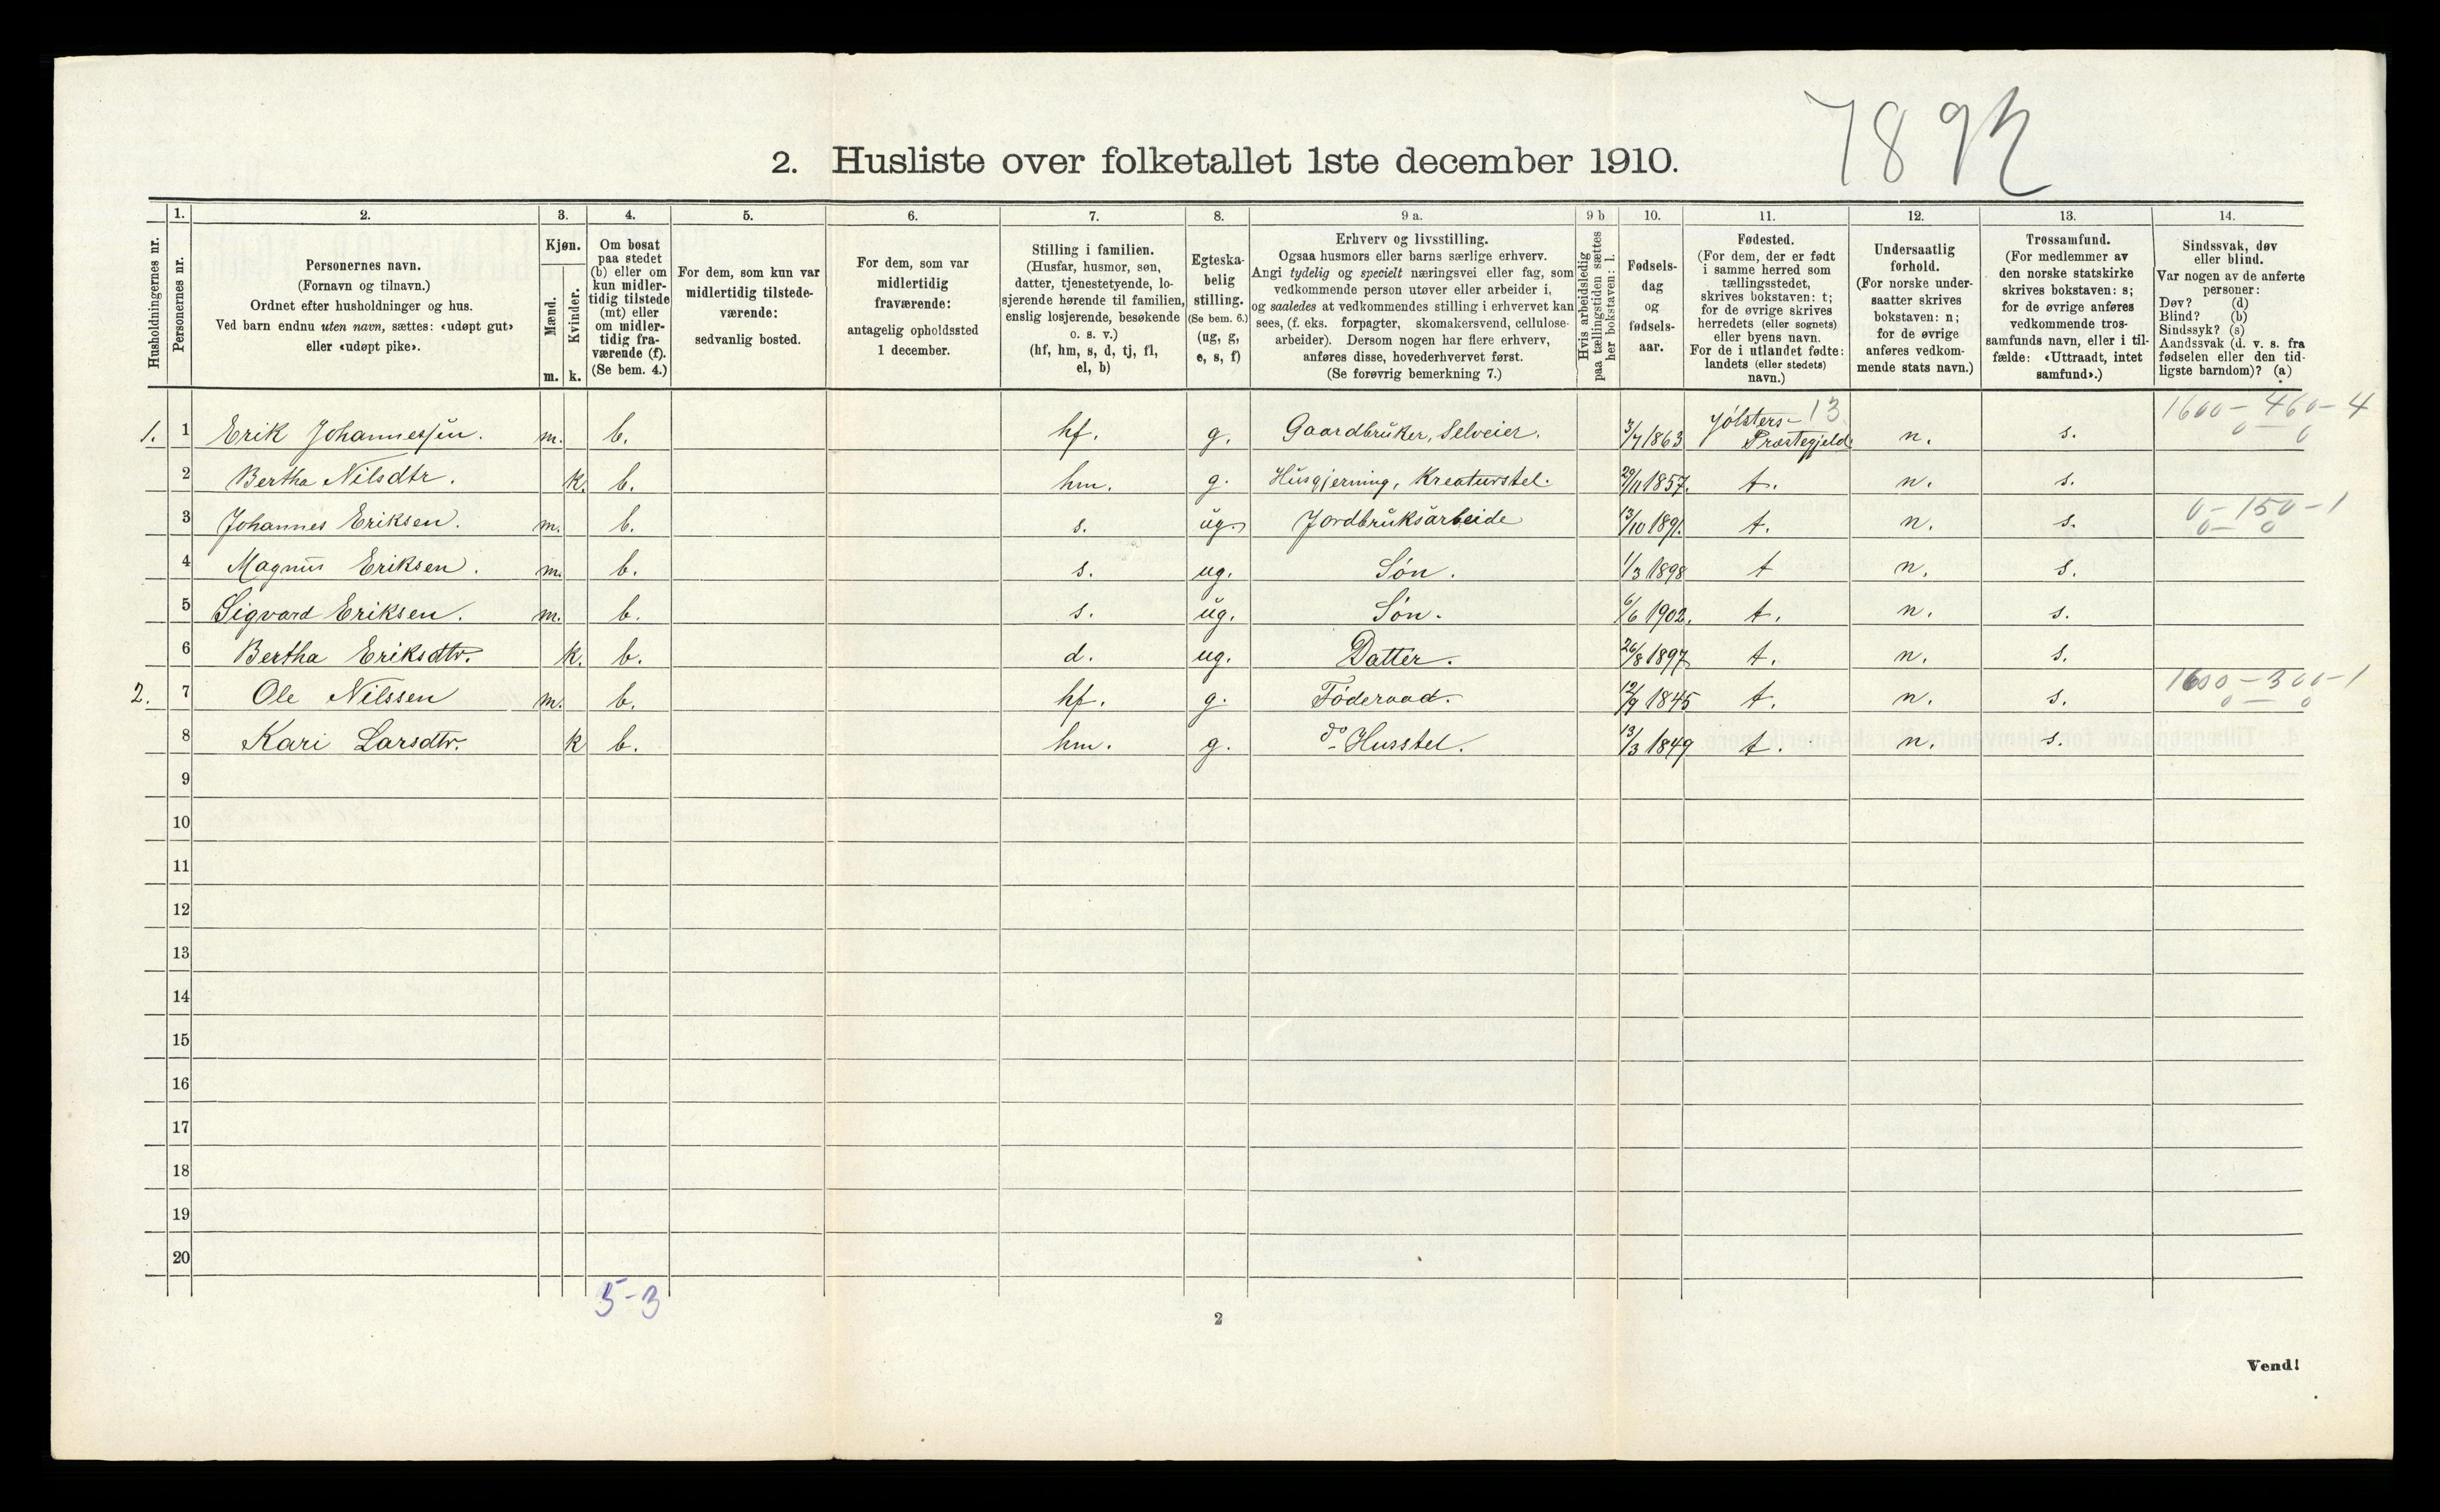 7892
2. Husliste over folketallet 1ste december 1910.
Husholdningernes nr.
1.
Personernes nr.
2.
Personernes navn.
(Fornavn og tilnavn.)
Ordnet efter husholdninger og hus.
Ved barn endnu uten navn, sættes: «udøpt gut»
eller «udøpt pike».
3.
Kjøn.
Mænd.
m.
Kvinder.
k.
4.
Om bosat
paa stedet
(b) eller om
kun midler-
tidig tilstede
(mt) eller
om midler-
tidig fra-
værende (f).
(Se bem. 4.)
5.
For dem, som kun var
midlertidig tilstede-
værende:
sedvanlig bosted.
6.
For dem, som var
midlertidig
fraværende:
antagelig opholdssted
1 december.
7.
Stilling i familien.
(Husfar, husmor, søn,
datter, tjenestetyende, lo-
sjerende hørende til familien,
enslig losjerende, besøkende
o. s. v.)
(hf, hm, s, d, tj, fl,
el, b)
8.
Egteska-
belig
stilling.
(Se bem. 6.)
(ug, g,
e, s, f)
9 a.
Erhverv og livsstilling.
Ogsaa husmors eller barns særlige erhverv.
Angi tydelig og specielt næringsvei eller fag, som
vedkommende person utøver eller arbeider i,
og saaledes at vedkommendes stilling i erhvervet kan
sees, (f. eks. forpagter, skomakersvend, cellulose-
arbeider). Dersom nogen har flere erhverv,
anføres disse, hovederhvervet først.
(Se forøvrig bemerkning 7.)
9 b
Hvis arbeidsledig
paa tællingstiden sættes
her bokstaven: l.
10.
Fødsels-
dag
og
fødsels-
aar.
11.
Fødested.
(For dem, der er født
i samme herred som
tællingsstedet,
skrives bokstaven: t;
for de øvrige skrives
herredets (eller sognets)
eller byens navn.
For de i utlandet fødte:
landets (eller stedets)
navn.)
12.
Undersaatlig
forhold.
(For norske under-
saatter skrives
bokstaven: n;
for de øvrige
anføres vedkom-
mende stats navn.)
13.
Trossamfund.
(For medlemmer av
den norske statskirke
skrives bokstaven: s;
for de øvrige anføres
vedkommende tros-
samfunds navn, eller i til-
fælde: «Uttraadt, intet
samfund».)
14.
Sindssvak, døv
eller blind.
Var nogen av de anførte
personer:
Døv? (d)
Blind? (b)
Sindssyk? (s)
Aandssvak (d. v. s. fra
fødselen eller den tid-
ligste barndom)? (a)
1600 – 460 – 4
0 – 0
1. 1 Erik Johannessen. m. b. hf. g. Gaardbruker, Selveier. 3/7 1863 Jølsters- 13 Præstegjeld. n. s.
2 Bertha Nilsdtr. k. b. hm. g. Husgjerning, Kreaturstel. 29/11 1857. t. n. s.
3 Johannes Eriksen. m. b. s. ug. Jordbruksarbeide 13/10 1891. t. n. s. 0 – 150 – 1
0 – 0
4 Magnus Eriksen. m. b. s. ug. Søn. 1/3 1898 t n. s.
5 Sigvard Eriksen. m. b. s. ug. Søn. 6/6 1902. t. n. s.
6 Bertha Eriksdtr. k. b. d. ug. Datter. 26/8 1897 t. n. s.
2. 7 Ole Nilssen m. b. hf. g. Føderaad. 12/9 1845 t. n. s. 1600 – 300 – 1
0 – 0
8 Kari Larsdtr. k b. hm. g. do Husstel. 13/3 1849 t. n. s.
9
10
11
12
13
14
15
16
17
18
19
20
5–3
2
Vend!